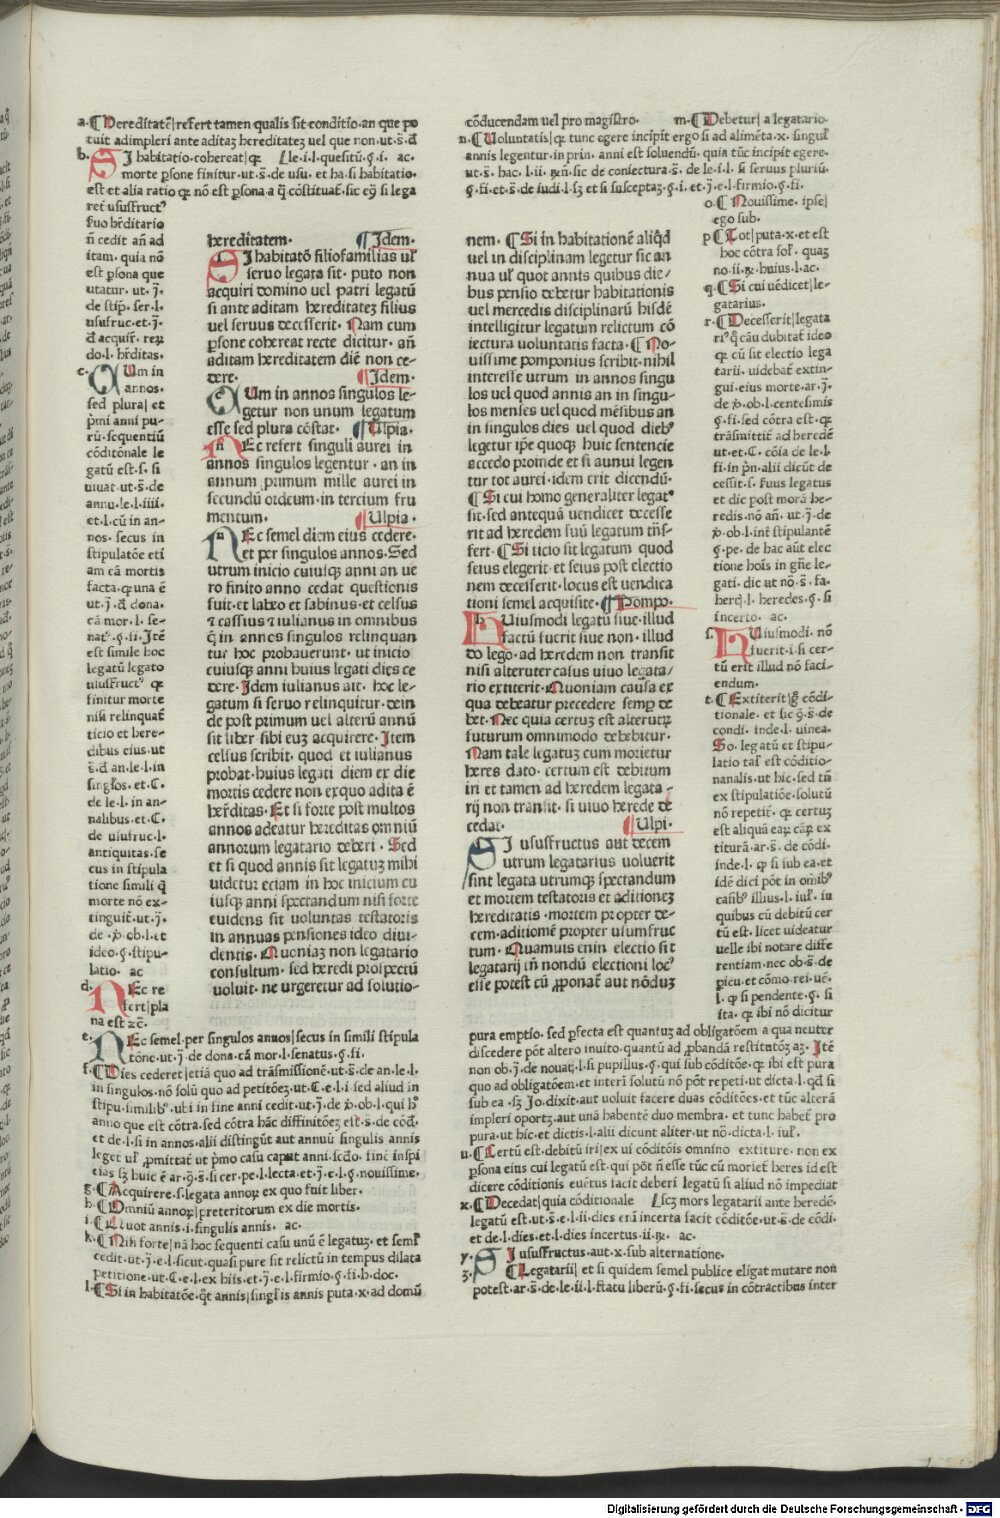 a. ¶ Hereditatē|refert tamen qualis sit conditio. an que po
tuit adimpleri ante aditaꝫ hereditateꝫ uel que non. ut. s̄. đ
b. SI habitatio cohereat|qꝛ le. i. l. quesitū. §. i. ac.
morte ꝑsone finitur. ut. s̄. de usu. et ha. si habitatio.
est et alia ratio qꝛ nō est ꝑsona a
ret ususfruct⁹
suo hr̄ditario
n̄ cedit an̄ ad
itam. quia nō
est ꝑsona que
utatur. ut. j̄.
de stip̄. ser. l.
ususfruc. et. j̄.
đ acquir̄. reꝝ
do. l. hr̄ditas.
c. CUm in
annos.
sed plura| et
p̄mi anni pu-
rū. sequentiū
cōditōnale le
gatū est. s. si
uiuat. ut. s̄. de
annu. le. l. iiii.
et. l. cū in an-
nos. secus in
stipulatōe eti
am cā mortis
facta. qꝛ una ē
ut. j̄. đ dona.
cā mor. l. se-
nat⁹. §. fi. Itē
est simile hoc
legatū legato
ususfruct⁹ qꝛ
finitur morte
nisi relinquat̄
ticio et here-
dibus eius. ut
s̄. đ an. le. l. in
singl̄os. et. C.
de le. l. in an-
nalibus. et. C.
de usufruc. l.
antiquitas. se
cus in stipula
tione simili qꝛ
morte nō ex-
tinguit̄. ut. j̄.
de. ꝟ. ob. l. et
ideo. §. stipu-
latio. ac
d. NEc re
fert|pla
na est ꝛc̄.
hereditatem. ¶ Idem.
SI habitatō filiofamilias ul̄
seruo legata sit. puto non
acquiri domino uel patri legatū
si ante aditam hereditateꝫ filius
uel seruus decesserit. Nam cum
ꝑsone cohereat recte dicitur. an̄
aditam hereditatem diē non ce-
dere. ¶ Idem.
CUm in annos singulos le-
getur non unum legatum
esse sed plura cōstat. ¶ Ulpia.
NEc refert singuli aurei in
annos singulos legentur. an in
annum primum mille aurei in
secundū ordeum. in tercium fru
mentum. ¶ Ulpia.
NEc semel diem eius cedere.
et per singulos annos. Sed
utrum inicio cuiusqꝫ anni an ue
ro finito anno cedat questionis
fuit. et labeo et sabinus. et celsus
ꞇ cassius ꞇ iulianus in omnibus
q̄ in annos singulos relinquan
tur hoc probauerunt. ut inicio
cuiusqꝫ anni huius legati dies ce
dere. Idem iulianus ait. hoc le-
gatum si seruo relinquitur. dein
de post primum uel alterū annū
sit liber sibi euꝫ acquirere. Item
celsus scribit. quod et iulianus
probat. huius legati diem ex die
mortis cedere non exquo adita ē
her̄ditas. Et si forte post multos
annos adeatur hereditas omniū
annorum legatario deberi. Sed
et si quod annis sit legatuꝫ mihi
uidetur eciam in hoc inicium cu
iusqꝫ anni spectandum nisi forte
euidens sit uoluntas testatoris
in annuas pensiones ideo diui-
dentis. Quoniaꝫ non legatario
consultum. sed heredi prospectū
uoluit. ne urgeretur ad solutio-
e. NEc semel. per singulos annos|secus in simili stipula
tōne. ut. j̄. de dona. cā mor. l. senatus. §. fi.
f. ¶ Dies cederet|etiā quo ad trāsmissionē. ut. s̄. de an. le. l.
in singulos. nō solū quo ad petitōeꝫ. ut. C. e. l. i sed aliud in
stipu. similib⁹. ubi in fine anni cedit. ut. j̄. de ꝟ. ob. l. qui h⁹
anno que est cōtra. sed cōtra hāc diffinitōeꝫ est. s̄. de cōđ.
et de. l. si in annos. alii distingūt aut annuū singulis annis
leget ul̄ ꝓmittat ut p̄mo casu caput anni. sc̄do. fine inspi
g. ¶ Acquirere. s. legata annoꝝ ex quo fuit liber.
h. ¶ Omniū annoꝝ|preteritorum ex die mortis.
i. ¶ Quot annis. i. singulis annis. ac.
k. ¶ Nisi forte|nā hoc sequenti casu unū ē legatuꝫ. et semꝑ
cedit. ut. j̄. e. l. sicut. quasi pure sit relictū in tempus dilata
petitione. ut. C. e. l. ex hiis. et. j̄. e. l. firmio. §. fi. h. doc.
l. ¶ Si in habitatōe. q̄t annis|singl̄is annis puta. x. ad domū
cōducendam uel pro magistro. m. ¶ Debetur| a legatario.
n. ¶ Uoluntatis| qꝛ tunc egere incipit ergo si ad alimēta. x. singul̄
annis legentur. in prin. anni est soluendū. quia tūc incipit egere.
ut. s̄. hac. l. ii. sic de coniectura. s̄. de le. i. l. si seruus pluriū.
§. fi. et. s̄. de iudi. l. sꝫ et si susceptaꝫ. §. i. et. j̄. e. l. firmio. §. fi.
nem. ¶ Si in habitationē aliqđ
uel in disciplinam legetur sic an
nua ul̄ quot annis quibus die-
bus pensio debetur habitationis
uel mercedis disciplinarū hisdē
intelligitur legatum relictum cō
iectura uoluntatis facta. ¶ No-
uissime pomponius scribit. nihil
interesse utrum in annos singu
los uel quod annis an in singu-
los menses uel quod mēsibus an
in singulos dies uel quod dieb⁹
legetur ip̄e quoqꝫ huic sentencie
accedo proinde et si annui legen
tur tot aurei. idem erit dicendū.
¶ Si cui homo generaliter legat⁹
sit. sed antequā uendicet decesse
rit ad heredem suū legatum tn̄s-
fert. ¶ Si ticio sit legatum quod
seius elegerit. et seius post electio
nem decesserit. locus est uendica
tioni semel acquisite. ¶ Pompo.
HUiusmodi legatū siue. illud
factū fuerit siue non. illud
do lego. ad heredem non transit
nisi alteruter casus uiuo legata-
rio extiterit. Quoniam causa ex
qua debeatur precedere semꝑ de
bet. Nec quia certuꝫ est alterutꝝ
futurum omnimodo debebitur.
Nam tale legatuꝫ cum morietur
heres dato. certum est debitum
iri et tamen ad heredem legata-
rij non transit. si uiuo herede de
cedat. ¶ Ulpi.
SI ususfructus aut decem
utrum legatarius uoluerit
sint legata utrumqꝫ spectandum
et mortem testatoris et aditioneꝫ
hereditatis. mortem propter de-
cem. aditionē propter usumfruc
tum. Quamuis enin electio sit
legatarij in̄ nondū electioni loc⁹
esse potest cū ꝓponat̄ aut nōduꝫ
o. ¶ Nouissime. ipse|
ego sub.
p ¶ Tot|puta. x. et est
hoc cōtra sol̄. quaꝫ
no. ii. ꝛ. huius. l. ac.
q. ¶ Si cui uēdicet|le-
gatarius.
r. ¶ Decesserit|legata
ri⁹. q̄ cāu dubitat̄ ideo
qꝛ cū sit electio lega
tarii. uidebat̄ extin-
gui. eius morte. ar. j̄.
de ꝟ. ob. l. centesimis
§. fi. sed cōtra est. qꝛ
trāsmittit̄ ad heredē
ut. et. C. cōia de le. l.
fi. in pn̄. alii dicūt de
cessit. s. suus legatus
et dic post morā he-
redis. nō an̄. ut. j̄. de
ꝟ. ob. l. int̄ stipulantē
§. pe. de hac aūt elec
tione hoīs in gn̄e le-
gati. dic ut nō. s̄. fa-
herc̄. l. heredes. §. si
incerto. ac.
s. HUiusmodi. nō
fuerit. i. si cer-
tū erit illud nō faci-
endum.
t. ¶ Extiterit|g̊ cōdi-
tionale. et sic q̊. s̄. de
condi. inde. l. uinea.
So. legatū et stipu-
latio tal̄ est cōditio-
nanalis. ut hic. sed tn̄
ex stipulatiōe. solutū
nō repetit̄. qꝛ certuꝫ
est aliquā eaꝝ cāꝝ ex
titurā. ar. s̄. de cōdi.
inde. l. qꝛ si iub ea. et
idē dici pōt in omīb⁹
casib⁹ illius. l. iul̄. in
quibus cū debitū cer
tū est. licet uideatur
uelle ibi notare diffe
rentiam. nec ob. s̄. de
ꝑicu. et cōmo. rei. uē.
l. qꝛ si pendente. §. si
ita. qꝛ ibi nō dicitur
pura emptio. sed ꝑfecta est quantuꝫ ad obligatōem a qua neuter
discedere pōt altero inuito. quantū ad ꝓbandā restitutōꝫ aꝫ. Itē
non ob. j̄. de nouat̄. l. si pupillus. §. qui sub cōditōe. qꝛ ibi est pura
quo ad obligatōem. et interī solutū nō pōt repeti. ut dicta. l. qđ si
sub ea. sꝫ Jo. dixit. aut uoluit facere duas cōditōes. et tūc alterā
impleri oportꝫ. aut unā habentē duo membra. et tunc habet̄ pro
pura. ut hic. et dictis. l. alii dicunt aliter. ut nō. dicta. l. iul̄.
u. ¶ Certū est. debitū iri|ex ui cōditōis omnino extiture. non ex
ꝑsona eius cui legatū est. qui pōt n̄ esse tūc cū moriet̄ heres id est
dicere cōditionis euētus facit deberi legatū si aliud nō impediat
x. ¶ Decedat|quia cōditionale scꝫ mors legatarii ante heredē.
legatū est. ut. s̄. e. l. ii. dies. enī incerta facit cōditōe. ut. s̄. de cōdi.
et de. l. dies. et. l. dies incertus. ii. ꝛ. ac.
y. SI ususfructus. aut. x. sub alternatione.
z. ¶ Legatarii| et si quidem semel publice eligat mutare non
potest. ar. s̄. de le. ii. l. statu liberū. §. fi. secus in cōtractibus inter
Digitalisierung gefördert durch die Deutsche Forschungsgemeinschaft - DFG